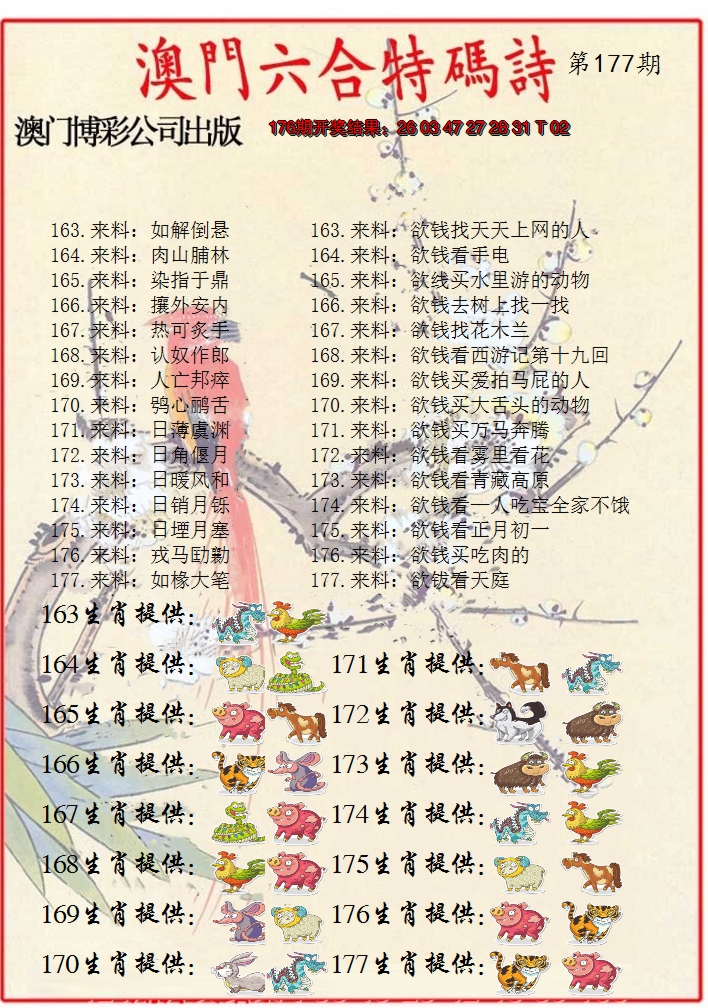 澳門六合特碼詩 第177期
澳门博彩公司出版 176期开奖结果：26 03 47 27 28 31 T 02
163.来料：如解倒悬 163.来料：欲钱找天天上网的人
164.来料：肉山脯林 164.来料：欲钱看手电
165.来料：染指于鼎 165.来料：欲线买水里游的动物
166.来料：攘外安内 166.来料：欲钱去树上找一找
167.来料：热可炙手 167.来料：欲钱找花木兰
168.来料：认奴作郎 168.来料：欲钱看西游记第十九回
169.来料：人亡邦瘁 169.来料：欲钱买爱拍马屁的人
170.来料：鸮心鹂舌 170.来料：欲钱买大舌头的动物
171.来料：日薄虞渊 171.来料：欲钱买万马奔腾
172.来料：日角偃月 172.来料：欲钱看雾里看花
173.来料：日暖风和 173.来料：欲钱看青藏高原
174.来料：日销月铄 174.来料：欲钱看一人吃宝全家不饿
175.来料：日堙月塞 175.来料：欲钱看正月初一
176.来料：戎马劻勷 176.来料：欲钱买吃肉的
177.来料：如椽大笔 177.来料：欲钹看天庭
163生肖提供：
164生肖提供： 171生肖提供：
165生肖提供： 172生肖提供：
166生肖提供： 173生肖提供：
167生肖提供： 174生肖提供：
168生肖提供： 175生肖提供：
169生肖提供： 176生肖提供：
170生肖提供： 177生肖提供：